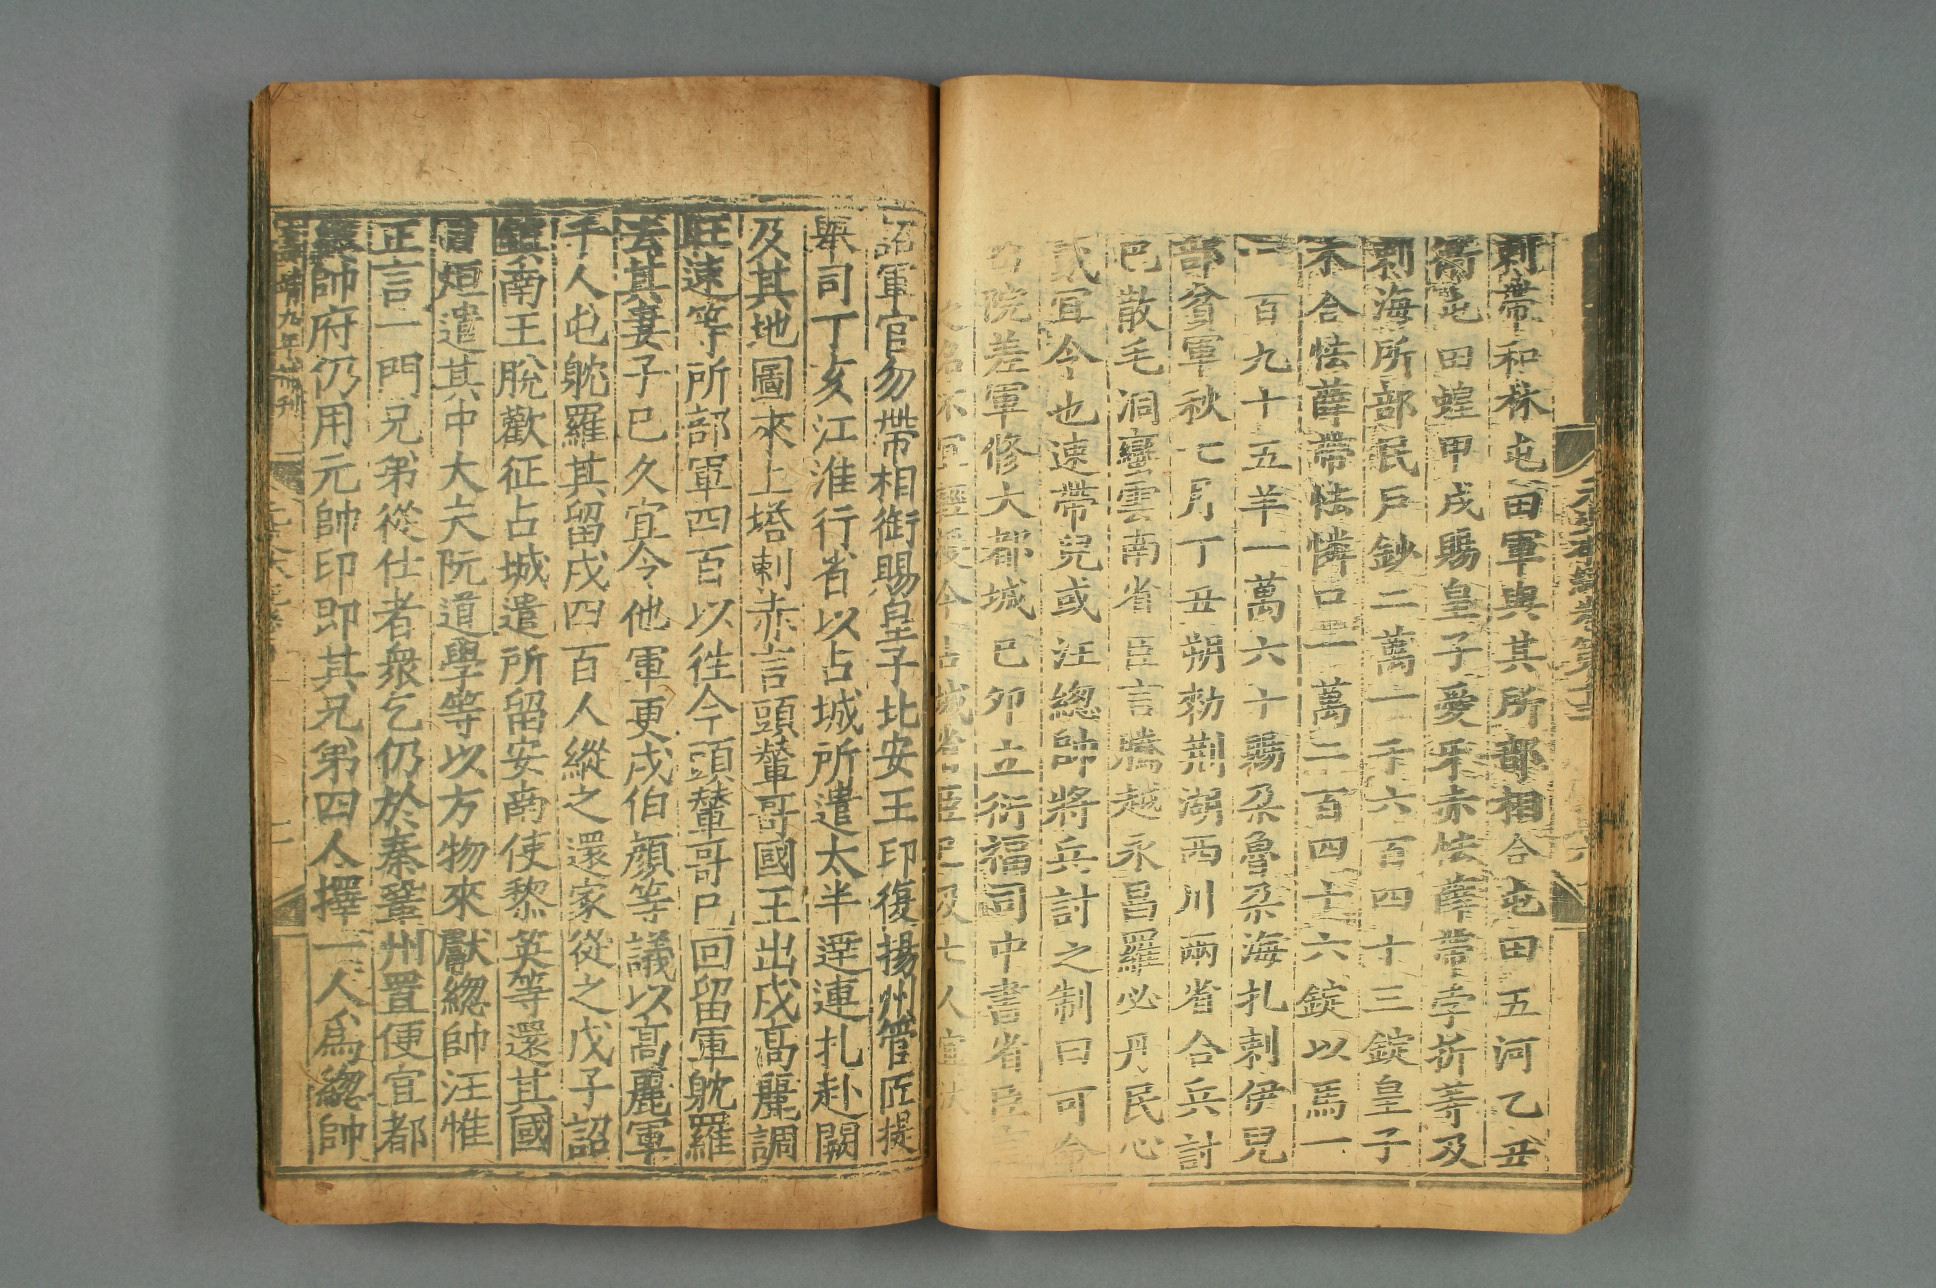 元史本紀卷第十三
剌帶和林屯田軍與其所部相合屯田五河乙丑
衛屯田蝗甲戌賜皇子愛牙赤怯薛帶孛折等及
剌海所部民戶鈔二萬一千六百四十三錠皇子
不合怯薛帶怯憐口一萬二百四十六錠以馬一
一百九十五羊一萬六十賜朵魯朵海扎剌伊兒
部貧軍秋七月丁丑朔敕荆湖西川兩省合兵討
巴散毛洞蠻雲南省臣言騰越永昌羅必丹民心
貳宜令也速帶兒或汪總帥將兵討之制曰可命
院差軍修大都城巳卯立衍福司中書省臣言
之名不宜輕授今占城省臣已及七人宜汰
詔軍官勿帶相銜賜皇子北安王印復揚州管匠提
舉司丁亥江淮行省以占城所遣太半達連扎赴闕
及其地圖來上塔剌赤言頭輦哥國王出戍高麗調
旺速等所部軍四百以往今頭輦哥巳回留軍耽羅
去其妻子巳久宜令他軍更戍伯顔等議以高麗軍
千人屯耽羅其留戍四百人縱之還家從之戊子詔
鎮南王脫歡征占城遣所留安南使黎英等還其國
日烜遣其中大夫阮道學等以方物來獻總帥汪惟
正言一門兄弟從仕者衆乞仍於秦鞏州置便宜都
總帥府仍用元帥印即其兄弟四人擇一人爲總帥
嘉靖九年補刊